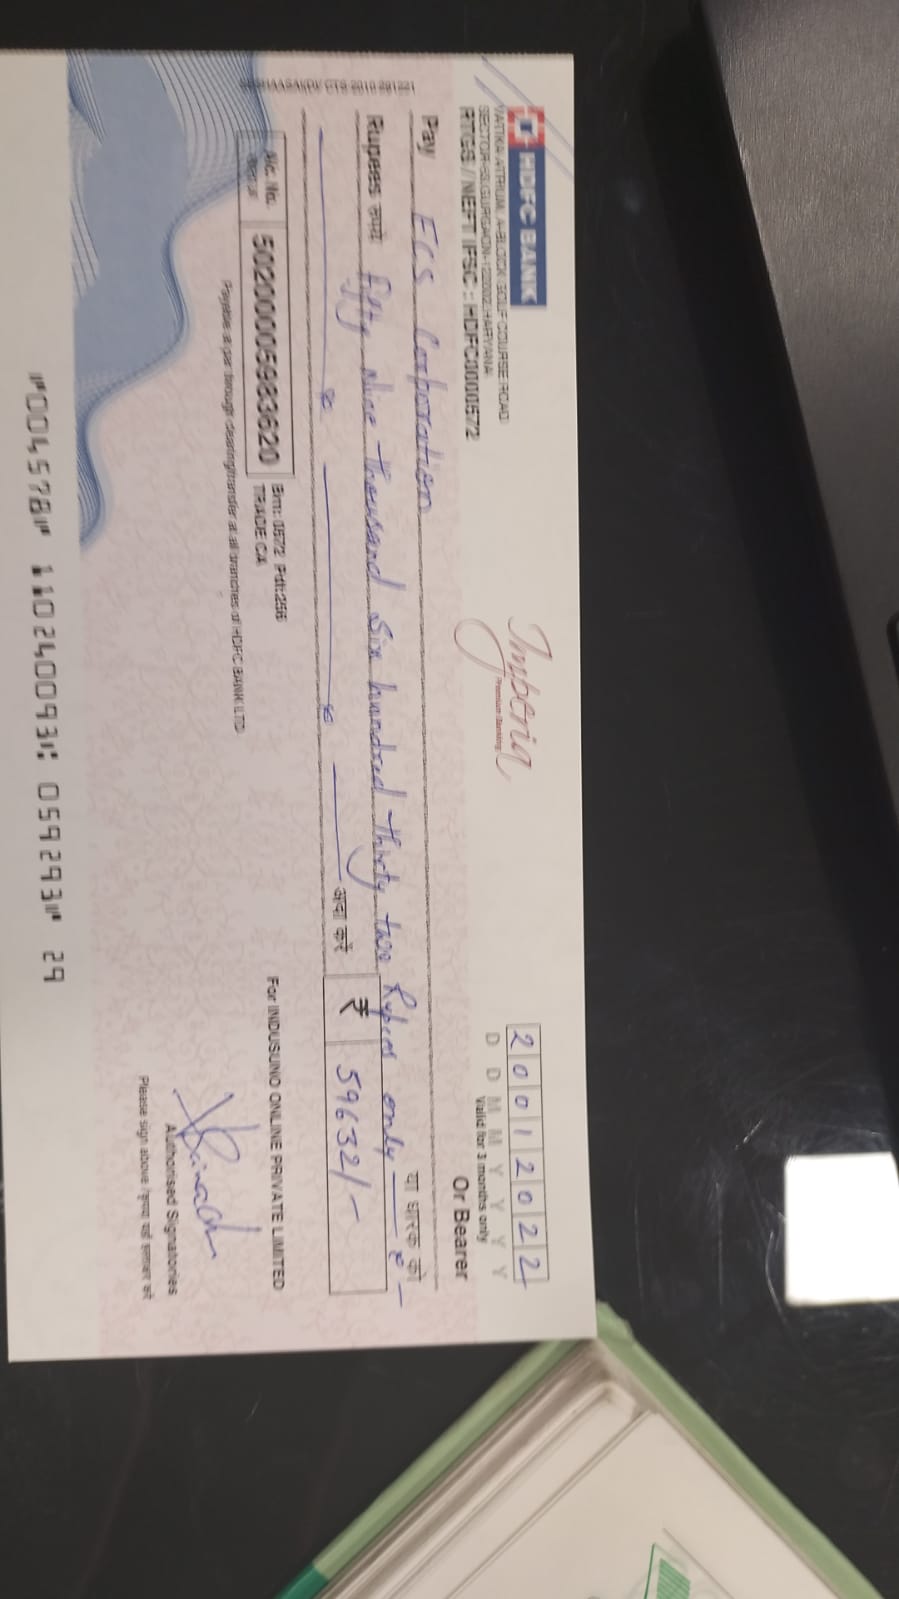 HDFC BANK
VATIKA ATRIUM, A-BLOCK, GOLF COURSE ROAD
SECTOR-53, GURGAON-122002, HARYANA
RTGS / NEFT IFSC : HDFC0000572
Imperia
Premium Banking
20012022
D D M M Y Y Y Y
Valid for 3 months only
Pay ECS Corporation Or Bearer
या धारक को
Rupees रुपये fifty nine thousand six hundred thirty two Rupees only
अदा करें ₹ 59632/-
A/c. No. 50200005983620
Brn: 0572 Pdt:256
TRADE CA
For INDUSUNO ONLINE PRIVATE LIMITED
Payable at par through clearing/transfer at all branches of HDFC BANK LTD
Authorised Signatories
Please sign above /
"004578" 110240093: 059293" 29